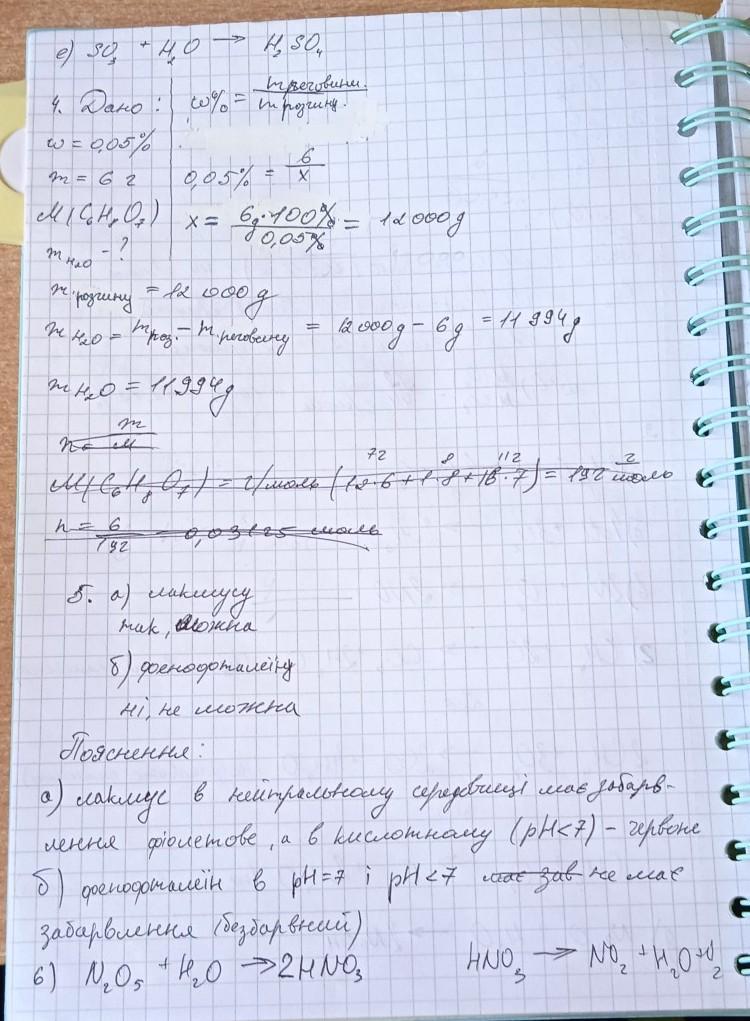 е) SO₃ + H₂O → H₂SO₄
4. Дано: ω% = m речовини. / m розчину.
ω = 0,05%
m = 6 г 0,05% = 6 / x
M(C₆H₈O₇) x = 6g·100% / 0,05% = 12 000g
m H₂O - ?
m розчину = 12 000 g
m H₂O = m роз. - m речовину = 12 000g - 6g = 11 994g
m H₂O = 11994g
n = m / M
72 8 112
M(C₆H₈O₇) = г/моль (12·6 + 1·8 + 16·7) = 192 г/моль
n = 6 / 192 = 0,03125 моль
5. а) лакмусу
так, можна
б) фенофталеїну
ні, не можна
Пояснення:
а) лакмус в нейтральному середовищі має забарв-
лення фіолетове, а в кислотному (pH<7) – червоне
б) фенофталеїн в pH=7 і pH<7 має заб не має
забарвлення (безбарвний)
6) N₂O₅ + H₂O → 2HNO₃ HNO₃ → NO₂ + H₂O + O₂